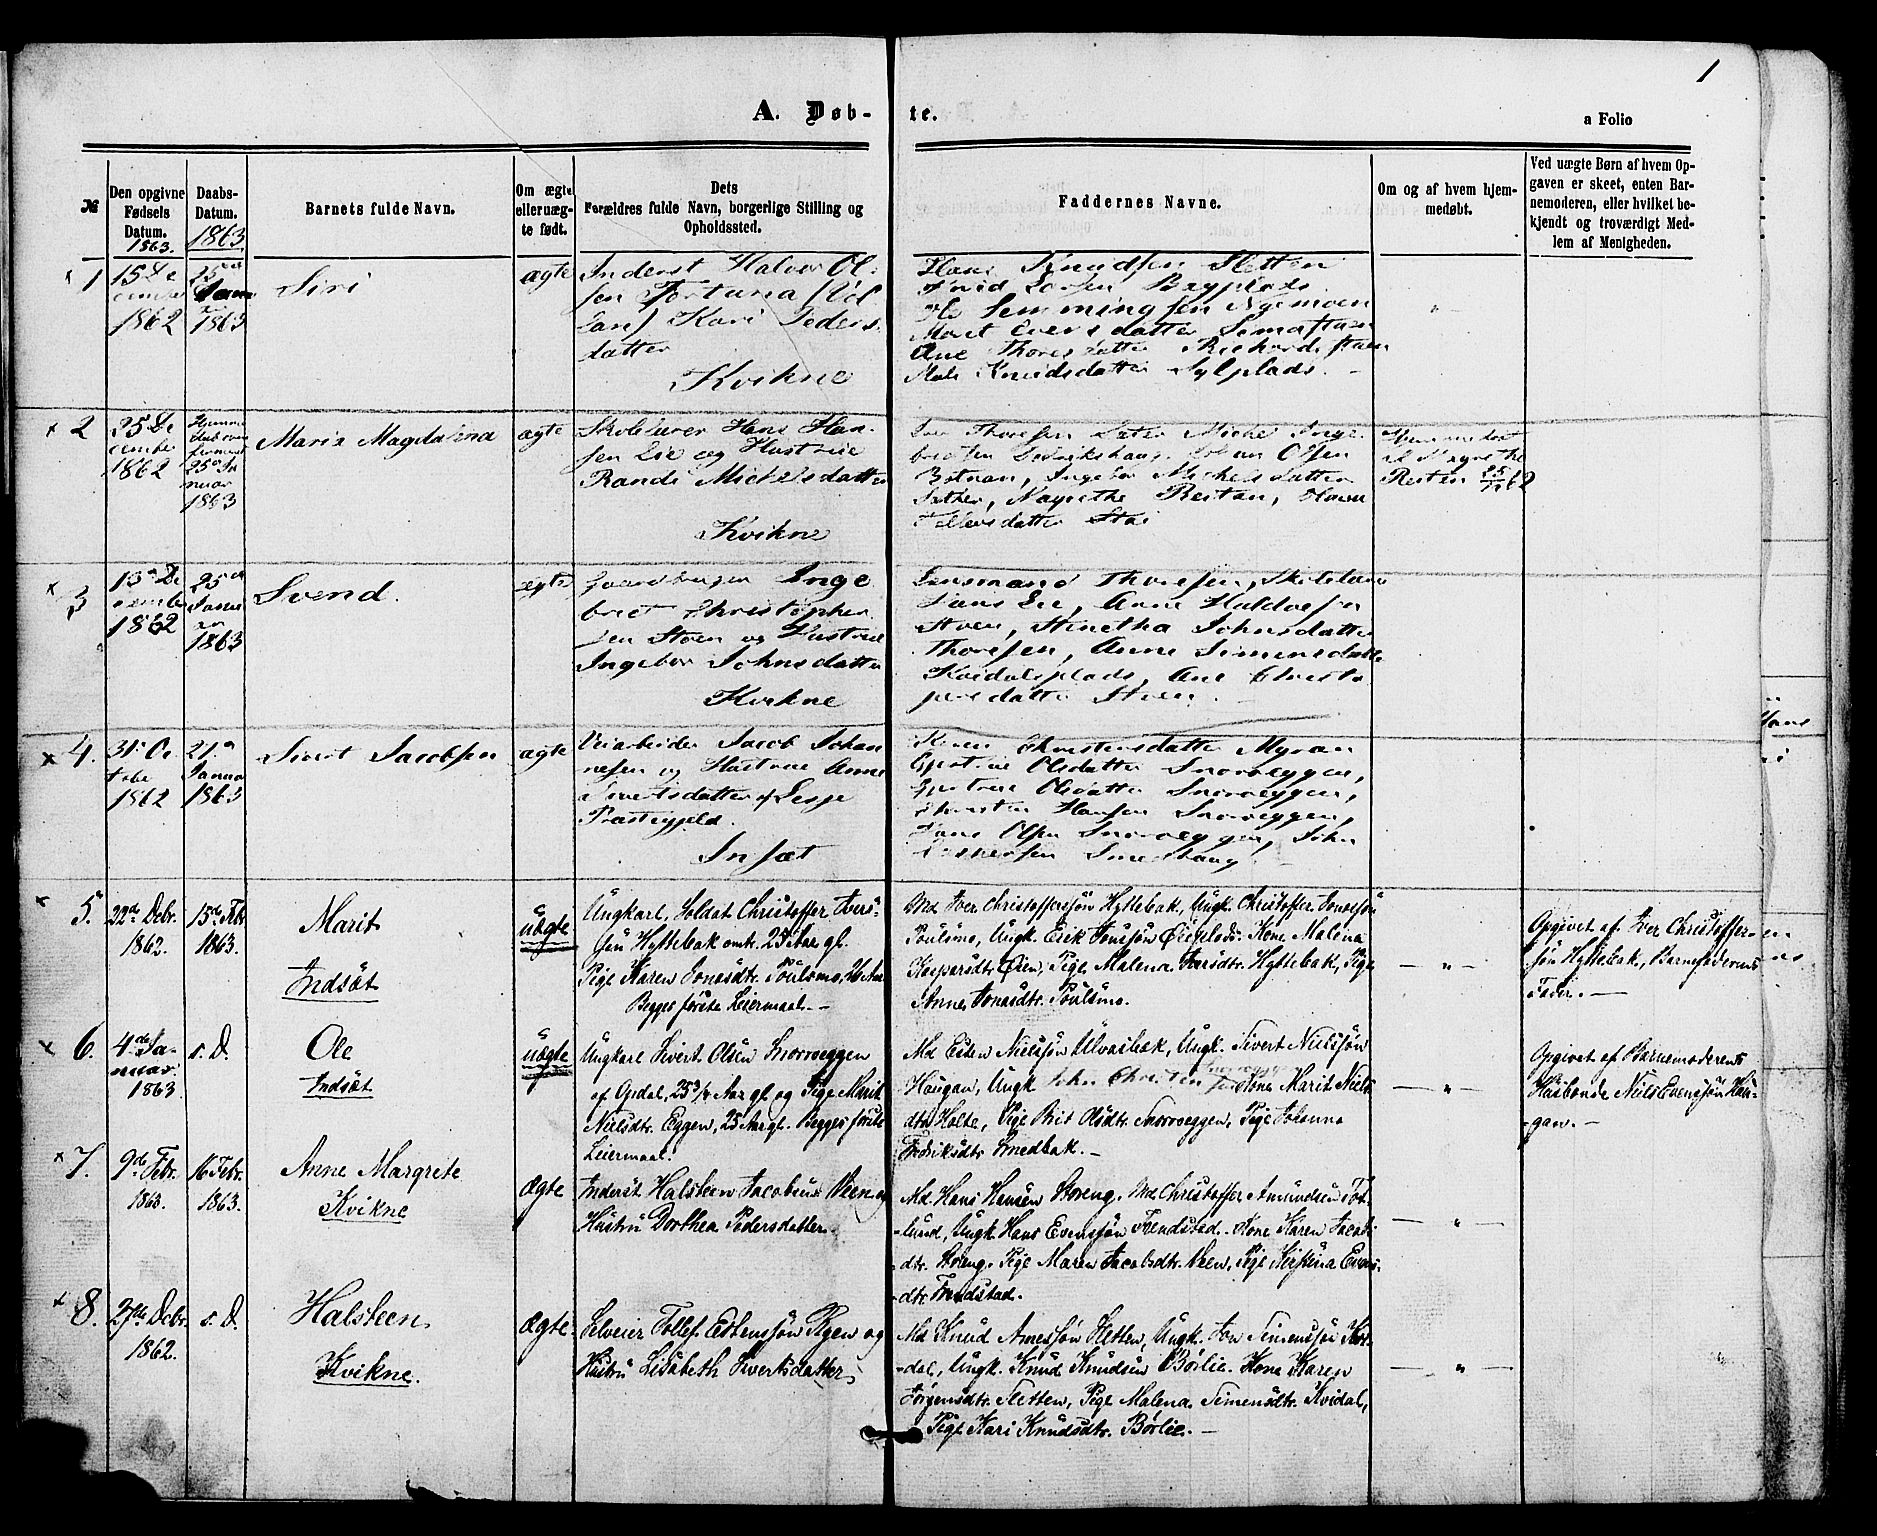 1
A. Døb-te.
a Folio
№
Den opgivne Fødsels Datum. 1863.
Daabs-Datum. 1863
Barnets fulde Navn.
Om ægte eller uæg-te født.
Dets Forældres fulde Navn, borgerlige Stilling og Opholdssted.
Faddernes Navne.
Om og af hvem hjem-medøbt.
Ved uægte Børn af hvem Op-gaven er skeet, enten Bar-nemoderen, eller hvilket be-kjendt og troværdigt Med-lem af Menigheden.
1
15 De
cember
1862
25de
Janu
1863
Siri
ægte
Inderst Halvor Ol-
sen Fortuna (Vol
dan) Kari Peders
datter
Kvikne
Hans Knudsen Sletten
Bryplads
Ole Semmingsen Nyemoen
Marit Evensdatter
Ane Thoresdatter
Knudsdatter Sylplads.
2
25 De
cember
1862
Hjemme
døbt
25de Ja
nuar
1863
Maria Magdalena
ægte
Skolelærer Hans Han-
sen Lie og Hustrue
Randi Mickelsdatter
Kvikne
Thoresen Mickel Inge
bretsen Olsen
Ingebor Mickelsdatter
Sæther, Nagrethe Resten,
datter Stai
Hjemmedøbt
af Nagrethe
Resten 25/12 62
3
13de De
cember
1862
25de
Janu
ar
1863
Svend.
ægte
Gaardbruger Inge
bret Christopher
sen Stoen og Hustrue
Ingebor Johnsdatter
Kvikne
Lensmand Thoresen, Skolelærer
Hans Lie, Anne Haldorsen
Stoen, Stinetha Johnsdatter
Thoresen, Anne Simensdatter
Kvidalsplads, Ane Christo
persdatter Stoen.
4.
31te Oc
tobe
1862
27de
Januar
1863
Sivert Jacobsen
ægte
Veiarbeider Jacob Johan
nesen og Hustrue Anne
Sivertsdatter af Lesje
Præstegjeld.
Insæt
Karen Christensdatter Myran
Olsdatter Snoroeggen,
Olsdatter Snoroeggen,
Christen Hansen Snoroeggen,
Hans Olsen Snoroeggen, John
Smedhaug
5.
22de Debr.
1862.
15de Febr
1863.
Marit
Indsöt
uægte
Ungkarl, Soldat Christoffer Ivers-
sön Hyttebak omtr. 25 Aar gl.
Pige Karen Jonasdtr. Poulsmo,
Begges förste Leiermaal. -
Md Iver Christofferssön Hyttebak, Ungk. Christoffer Jonassön
Poulsmo, Ungk. Erik Jonssön Øieplads. Kone Malena
Kaspersdtr. Øien, Pige Malena Iversdtr. Hyttebak, Pige
Anne Jonasdtr. Poulsmo.
— „ —
Opgivet af Iver Christoffer-
sön Hyttebak, Barnefaderens
Fader. —
6.
4de Ja-
nuar
1863
s. D.
Ole
Indsöt
uægte
Ungkarl Sivert Olsen Snorroeggen
af Opdal, 25 3/4 Aar gl. og Pige Marit
Nielsdtr. Eggen, 25 Aar gl. Begges förste
Leiermaal.
Md Esten Nielssön Ulvasbak, Ungk. Sivert Nielssön
Haugan, Ungk John Christensen Snoroeggen Kone Marit Niels
dtr Holte, Pige Brit Olsdtr. Snorroeggen, Pige Johanna
Fredriksdtr. Smedbak. —
— „ —
Opgivet af Barnemoderens
Husbonde Niels Evenssön Hau-
gan. —
7.
9de Febr.
1863.
16 Febr.
1863.
Anne Margrete
Kvikne
Ægte
Inderst Halsteen Jacobsen Veen og
Hustru Dorthea Pedersdatter
Md. Hans Hansen Storeng. Md Christoffer Amundsen Tot-
lund, Ungk. Hans Evenssön Frendstad. Kone Karen Jacobs
dtr. Storeng. Pige Maren Jacobsdtr. Veen, Pige Evens-
dtr. Frendstad.
— „ —
8.
27de Debr.
1862.
s. D.
Halsteen
Kvikne.
Ægte
Selveier Tollef Estenssön Ryen og
Hustru Lisabeth Sivertsdatter
Md Knud Arnessön Sletten, Ungk. Jon Simenssön Kvi-
dal, Ungk. Knud Knudsen Börlie. Kone Karen
Jörgensdtr. Sletten, Pige Malena Simensdtr. Kvidal,
Pige Kari Knudsdtr. Börlie. —
— „ —